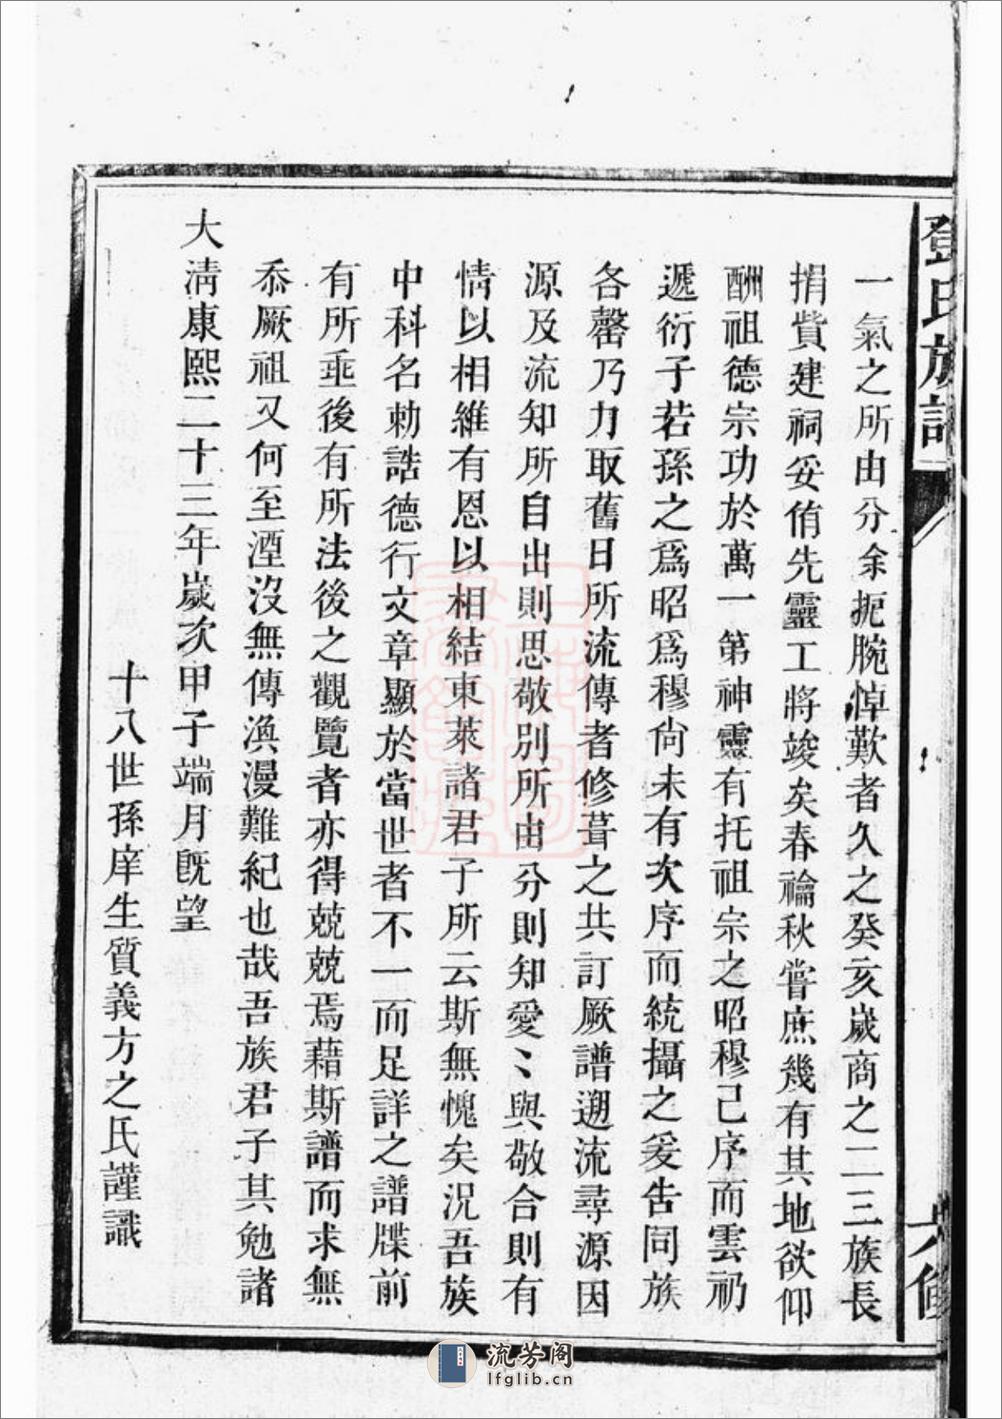 鄧氏族譜
六修
一氣之所由分余扼腕悼歎者久之癸亥歲商之二三族長
捐貲建祠妥侑先靈工將竣矣春禴秋嘗庶幾有其地欲仰
酬祖德宗功於萬一第神靈有托祖宗之昭穆已序而雲礽
遞衍子若孫之爲昭爲穆尙未有次序而統攝之爰吿同族
各罄乃力取舊日所流傳者修葺之共訂厥譜遡流尋源因
源及流知所自出則思敬別所由分則知愛〻與敬合則有
情以相維有恩以相結東萊諸君子所云斯無愧矣況吾族
中科名勅誥德行文章顯於當世者不一而足詳之譜牒前
有所垂後有所法後之觀覽者亦得兢兢焉藉斯譜而求無
忝厥祖又何至湮沒無傳渙漫難紀也哉吾族君子其勉諸
大淸康熙二十三年歲次甲子端月旣望
十八世孫庠生質義方之氏謹識
流芳阁
lfglib.cn